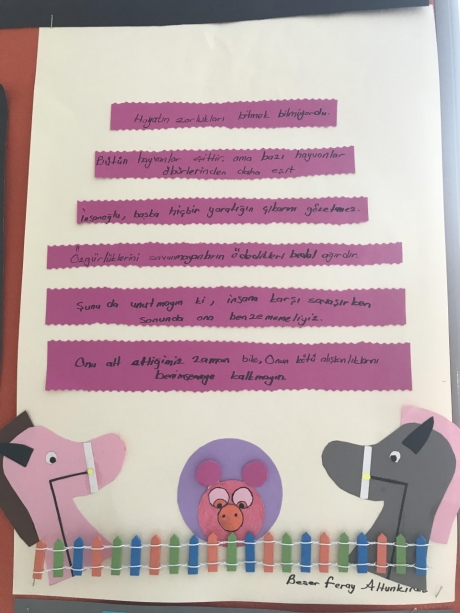 Hayatın zorlukları bitmek bilmiyordu.
Bütün hayvanlar eşittir. ama bazı hayvanlar
öbürlerinden daha eşit
İnsanoğlu, başka hiçbir yaratığın çıkarını gözetmez.
Özgürlüklerini savunmayanların ödedikleri bedel ağırdır.
Şunu da unutmayın ki, insana karşı savaşırken
sonunda ona benzememeliyiz.
Onu alt ettiğimiz zaman bile, Onun kötü alışkanlıklarını
benimsemeye kalkmayın
Beser Feray Altunkıran